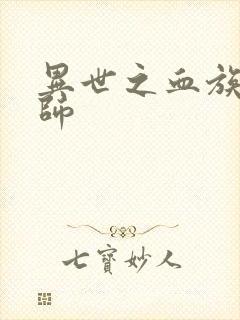 異世之血族
師
七寶妙人